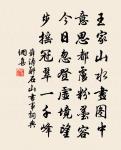 王家山水畫圖中
意思都盧粉墨容
今日忽登虛境望
步搖冠翠一千峰
薛濤斛石山書事詞典
網集